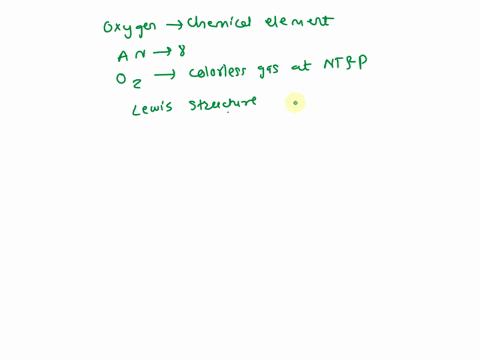 Oxygen → Chemical element
A N → 8
O2 → Colorless gas at NT&P
Lewis structure